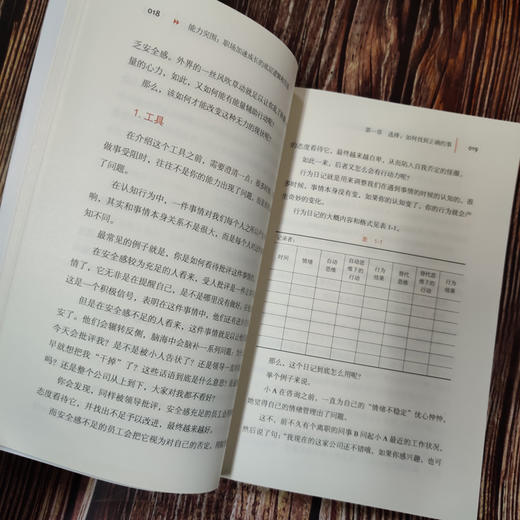 018
能力突围：职场加速成长的底层逻辑
乏安全感。外界的一丝风吹草动就足以让你
量的心力，如此，又如何能有能量辅助行动呢？
那么，该如何才能改变这种无力的现状呢？
1. 工具
在介绍这个工具之前，需要澄清一点，很多时候
做事受阻时，往往不是你的能力出现了问题，而是
了问题。
在认知行为中，一件事情对我们每个人之所以产生
响，其实和事情本身关系不是很大，而是每个人的
知不同。
最常见的例子就是，你是如何看待批评这件事情
在安全感较为充足的人看来，受人批评是一件
情了，它无非是在提醒自己，是不是哪里没有做好，
是一个积极信号，表明在这件事情中，他们还有进
但是在安全感不足的人看来，这件事情就足以让
安了。他们会辗转反侧，脑海中会脑补一系列问题，
今天会批评我？是不是被小人告状了？还是领导一
早就想把我“干掉”了？这些话语到底是什么意思？
吗？还是整个公司从上到下，大家对我都不看好？
你会发现，同样被领导批评，安全感充足的员工会
态度看待它，并找出不足予以改进，最终越来越好。
而安全感不足的员工会把它视为对自己的否定，
第一章 选择：如何找到正确的事
019
的态度看待它，最终越来越自卑，从而陷入自我否定的怪圈。
如此一来，后者又怎么会有行动力呢？
行为日记就是用来调整我们在遇到事情的时候的认知的。很
多时候，事情本身没有变，如果你的认知变了，你的行为就会产
生奇妙的变化。
行为日记的大概内容和格式见表 1-1。
表 1-1
记录者：
时间
情绪
自动思维
自动思维下的行动
行为结果
替代思维
替代思维下的行动
行为结果
那么，这个日记到底怎么用呢？
举个例子来说。
小 A 在咨询之前，一直为自己的“情绪不稳定”忧心忡忡，
她觉得自己的情绪管理出了问题。
这不，前不久有个离职的同事 B 问起小 A 最近的工作状况，
然后说了句：“我现在的这家公司还不错哦，如果你感兴趣，也可